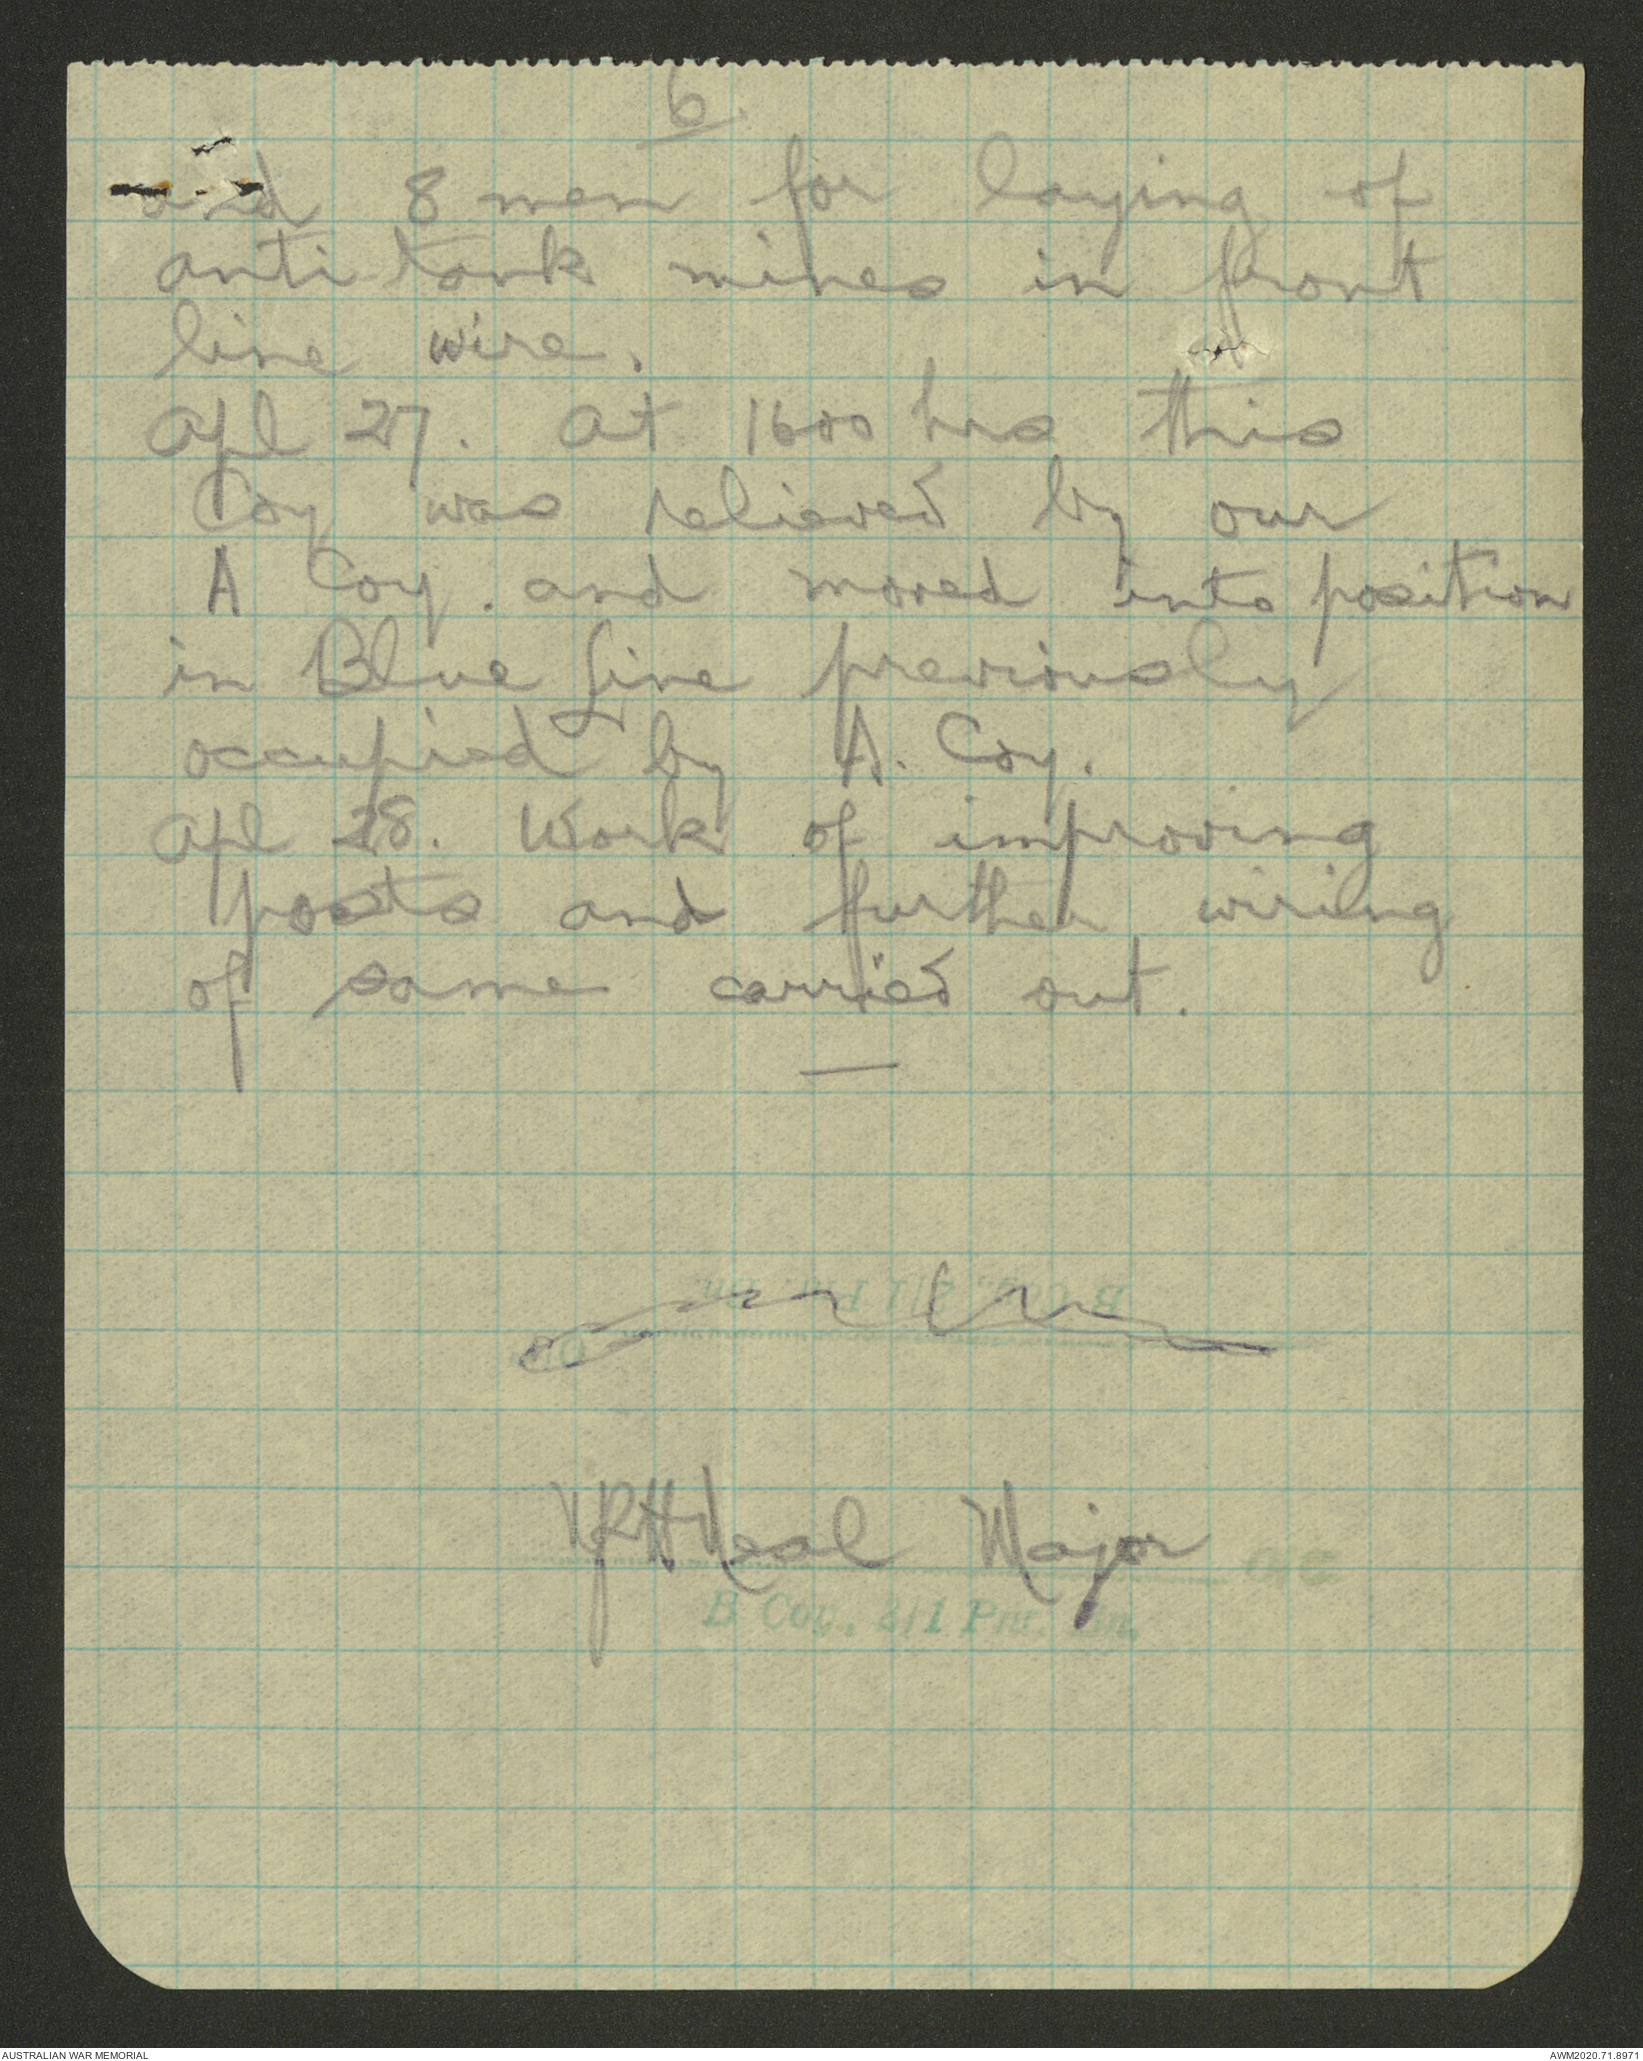 6.
and 8 men for laying of
anti tank mines in front
line wire.
Apl 27. At 1600 hrs this
Coy was relieved by our
A Coy. and moved into position
in Blue Line previously
occupied by A. Coy.
Apl 28. Work of improving
posts and further wiring
of same carried out.
Neal Major
O.C.
B Coy., 2/1 Pnr. Bn.
AUSTRALIAN WAR MEMORIAL
AWM2020.71.8971